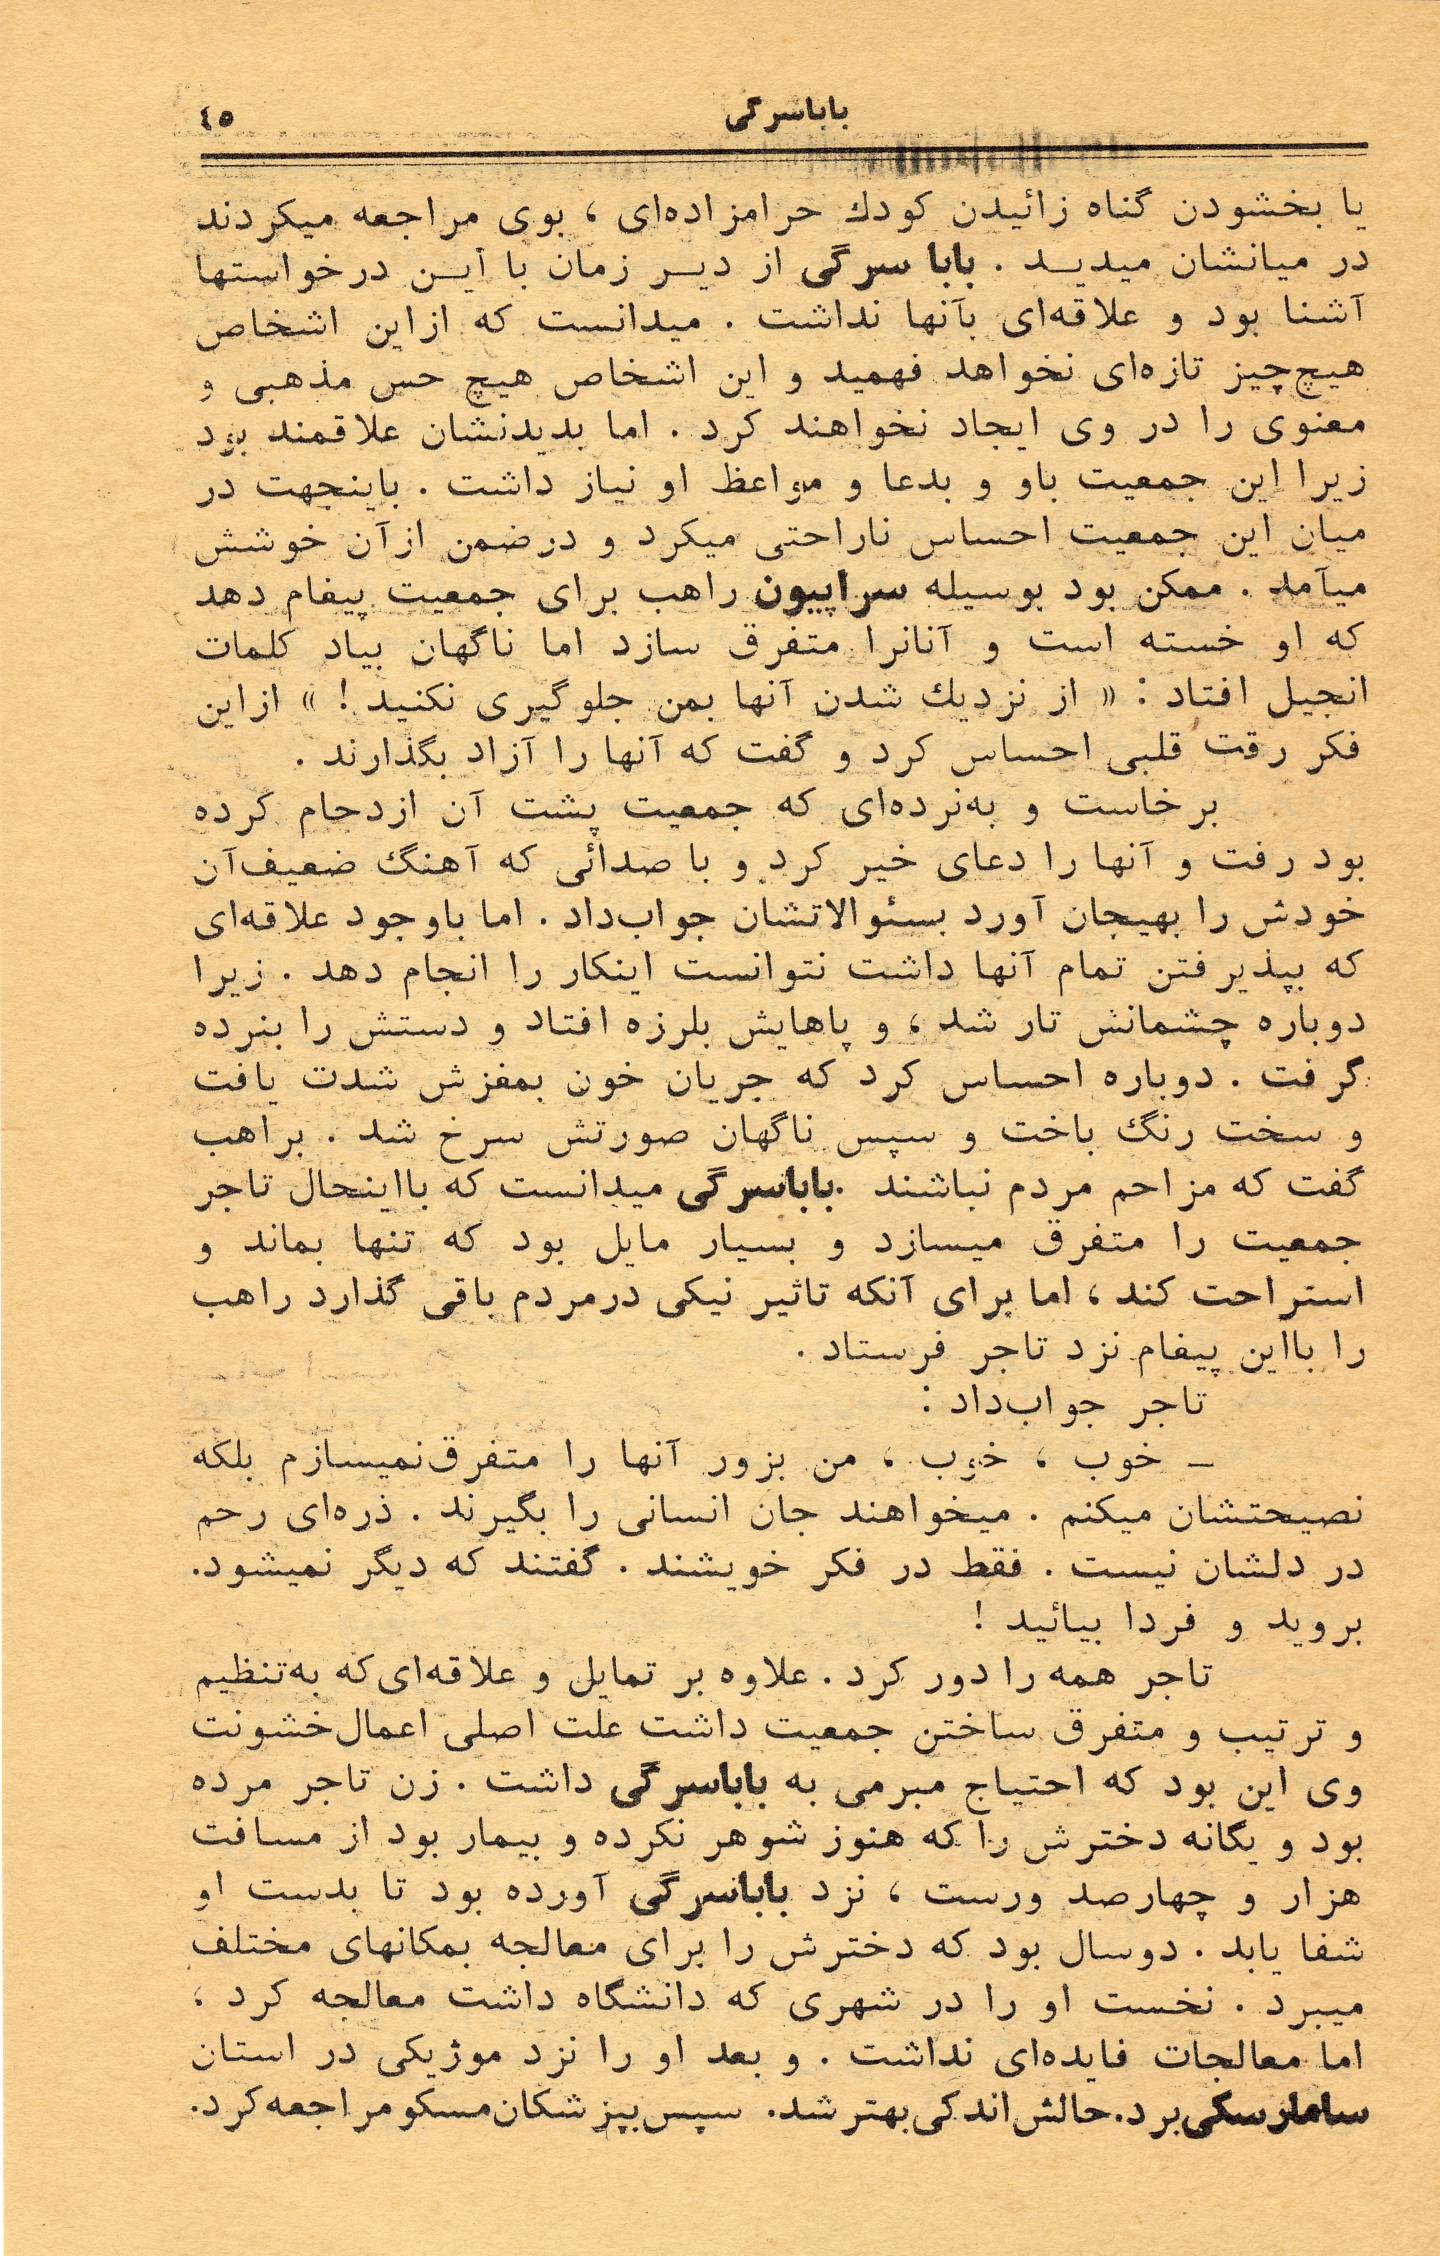 باباسرگی ٤٥
یا بخشودن گناه زائیدن کودك حرامزاده‌ای ، بوی مراجعه میکردند
در میانشان میدیــد . بابا سرگی از دیــر زمان با ایــن درخواستها
آشنا بود و علاقه‌ای بآنها نداشت . میدانست که ازاین اشخاص
هیچ‌چیز تازه‌ای نخواهد فهمید و این اشخاص هیچ حس مذهبی و
معنوی را در وی ایجاد نخواهند کرد . اما بدیدنشان علاقمند بود
زیرا این جمعیت باو و بدعا و مواعظ او نیاز داشت . باینجهت در
میان این جمعیت احساس ناراحتی میکرد و درضمن ازآن خوشش
میآمد . ممکن بود بوسیله سراپیون راهب برای جمعیت پیغام دهد
که او خسته است و آنانرا متفرق سازد اما ناگهان بیاد کلمات
انجیل افتاد : « از نزدیك شدن آنها بمن جلوگیری نکنید ! » ازاین
فکر رقت قلبی احساس کرد و گفت که آنها را آزاد بگذارند .
برخاست و به‌نرده‌ای که جمعیت پشت آن ازدحام کرده
بود رفت و آنها را دعای خیر کرد و با صدائی که آهنگ ضعیف‌آن
خودش را بهیجان آورد بسئوالاتشان جواب‌داد . اما باوجود علاقه‌ای
که بپذیرفتن تمام آنها داشت نتوانست اینکار را انجام دهد . زیرا
دوباره چشمانش تار شد ، و پاهایش بلرزه افتاد و دستش را بنرده
گرفت . دوباره احساس کرد که جریان خون بمغزش شدت یافت
و سخت رنگ باخت و سپس ناگهان صورتش سرخ شد . براهب
گفت که مزاحم مردم نباشند . باباسرگی میدانست که بااینحال تاجر
جمعیت را متفرق میسازد و بسیار مایل بود که تنها بماند و
استراحت کند ، اما برای آنکه تاثیر نیکی درمردم باقی گذارد راهب
را بااین پیغام نزد تاجر فرستاد .
تاجر جواب‌داد :
ـ خوب ، خوب ، من بزور آنها را متفرق‌نمیسازم بلکه
نصیحتشان میکنم . میخواهند جان انسانی را بگیرند . ذره‌ای رحم
در دلشان نیست . فقط در فکر خویشند . گفتند که دیگر نمیشود.
بروید و فردا بیائید !
تاجر همه را دور کرد . علاوه بر تمایل و علاقه‌ای‌که به‌تنظیم
و ترتیب و متفرق ساختن جمعیت داشت علت اصلی اعمال‌خشونت
وی این بود که احتیاج مبرمی به باباسرگی داشت . زن تاجر مرده
بود و یگانه دخترش را که هنوز شوهر نکرده و بیمار بود از مسافت
هزار و چهارصد ورست ، نزد باباسرگی آورده بود تا بدست او
شفا یابد . دوسال بود که دخترش را برای معالجه بمکانهای مختلف
میبرد . نخست او را در شهری که دانشگاه داشت معالجه کرد ،
اما معالجات فایده‌ای نداشت . و بعد او را نزد موژیکی در استان
سامارسکی‌برد.حالش‌اندکی‌بهترشد. سپس‌بپزشکان‌مسکومراجعه‌کرد.